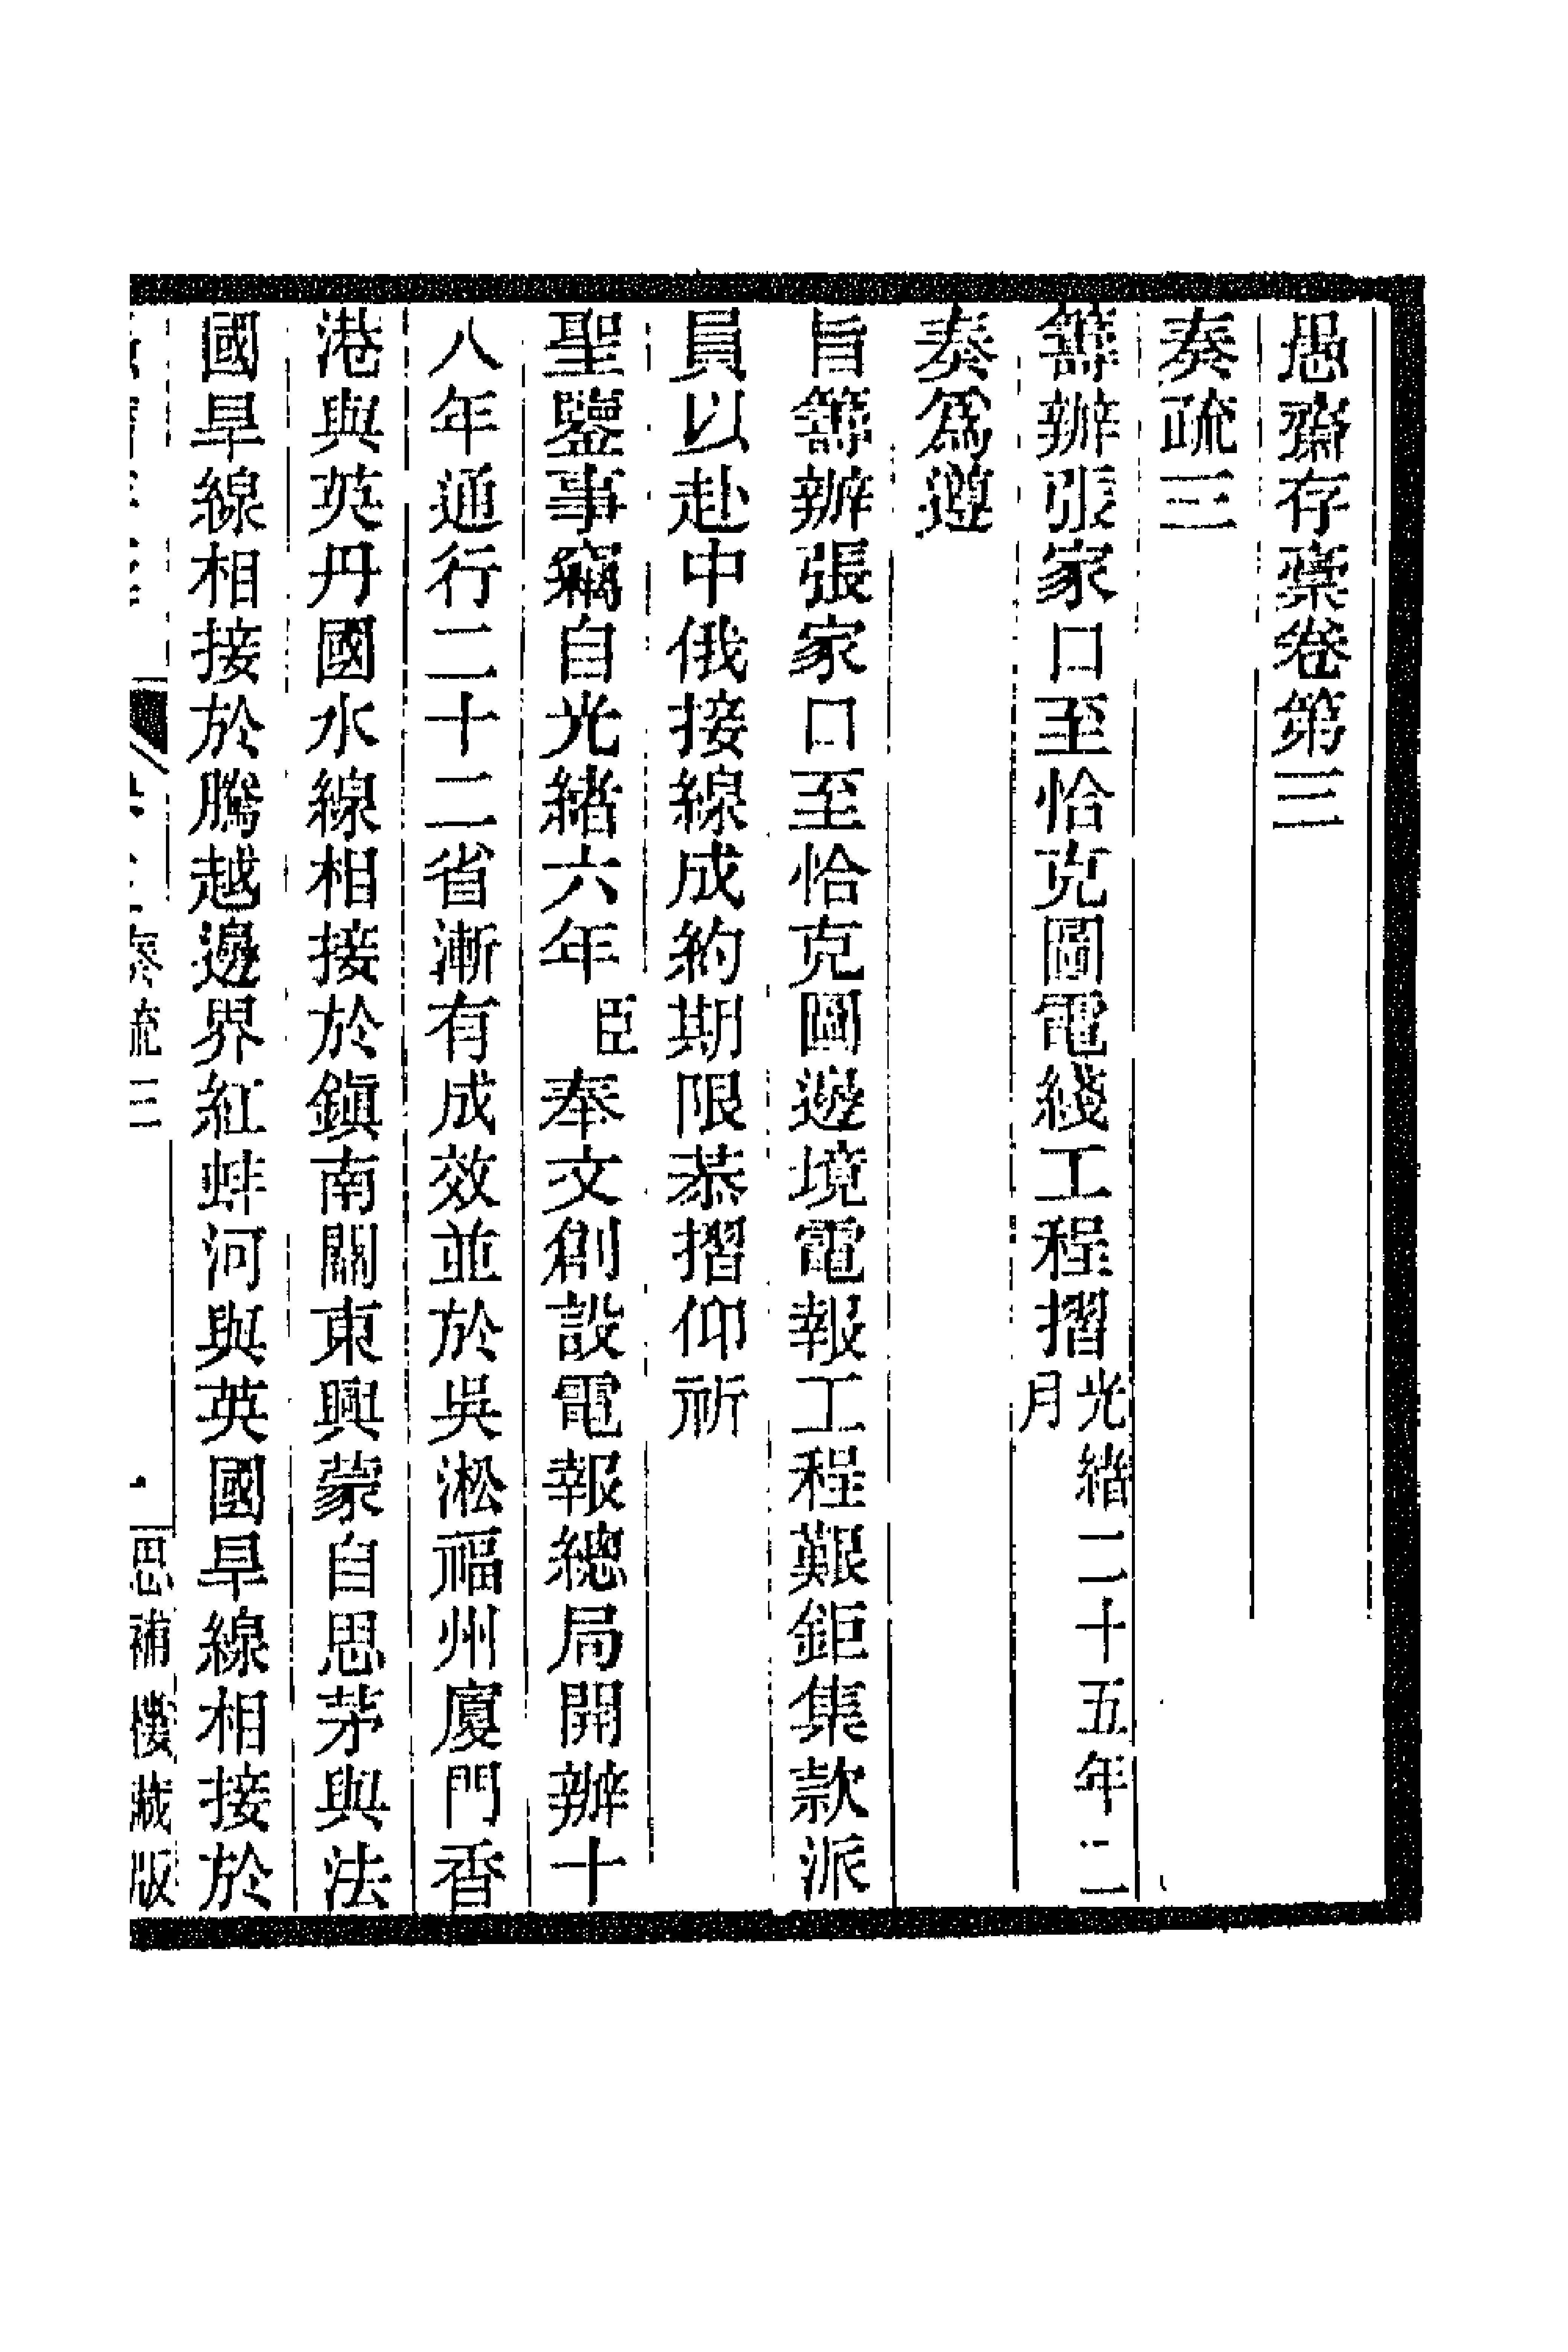 愚齋存稾卷第三
奏疏三
籌辦張家口至恰克圖電綫工程摺光緒二十五年二月
奏爲遵
旨籌辦張家口至恰克圖邊境電報工程艱鉅集款派
員以赴中俄接線成約期限恭摺仰祈
聖鑒事竊自光緒六年臣奉文創設電報總局開辦十
八年通行二十二省漸有成效並於吳淞福州廈門香
港與英丹國水線相接於鎭南關東興蒙自思茅與法
國旱線相接於騰越邊界紅蚌河與英國旱線相接於
奏疏三
思補樓藏版